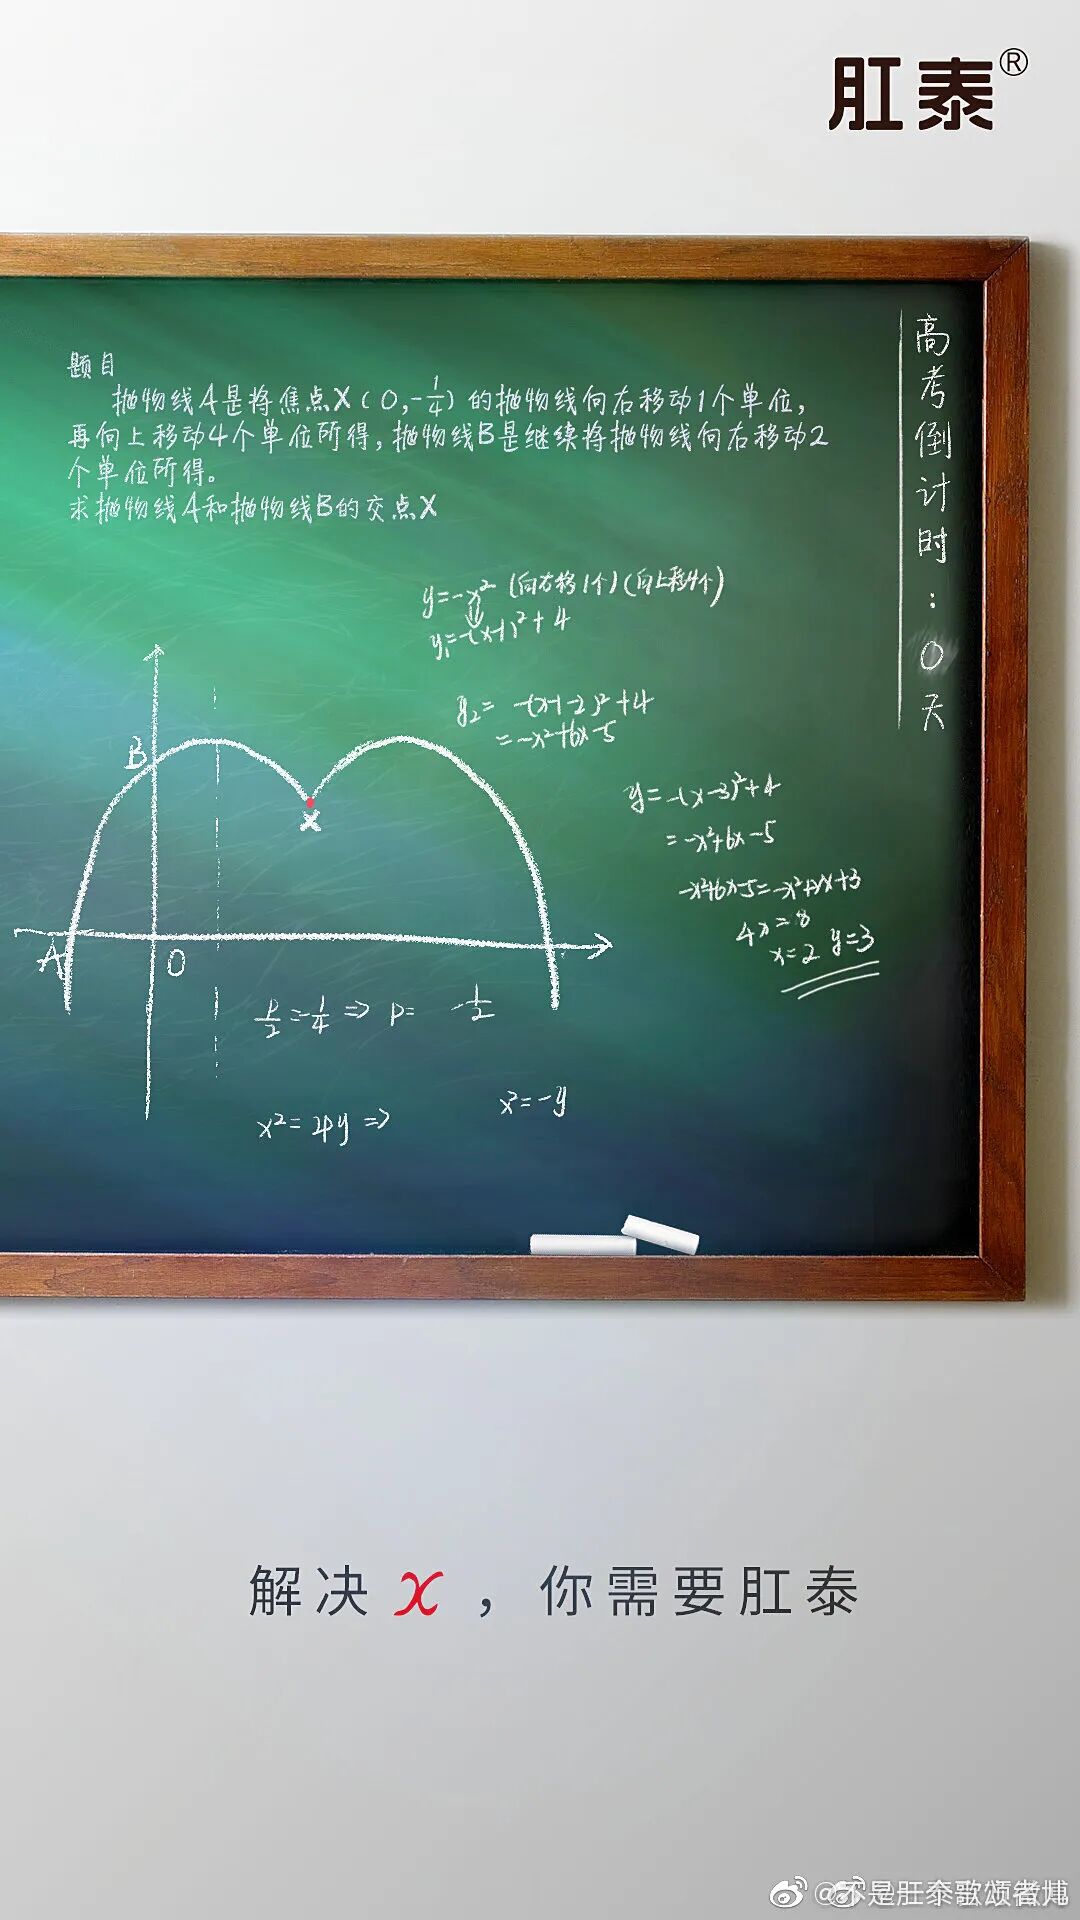 肛泰®
题目
抛物线A是将焦点X(0,-1/4)的抛物线向右移动1个单位,
再向上移动4个单位所得,抛物线B是继续将抛物线向右移动2
个单位所得。
求抛物线A和抛物线B的交点X
高考倒计时:0天
y=-x² (向右移1个)(向上移4个)
y₁=-(x-1)²+4
y₂= -(x-1-2)²+4
=-x²+6x-5
B
X
A
O
y=-(x-3)²+4
=-x²+6x-5
-x²+6x-5=-x²+2x+3
4x=8
x=2 y=3
p/2=1/4 ⇒ p= -1/2
x²=2py ⇒ x²=-y
解决x,你需要肛泰